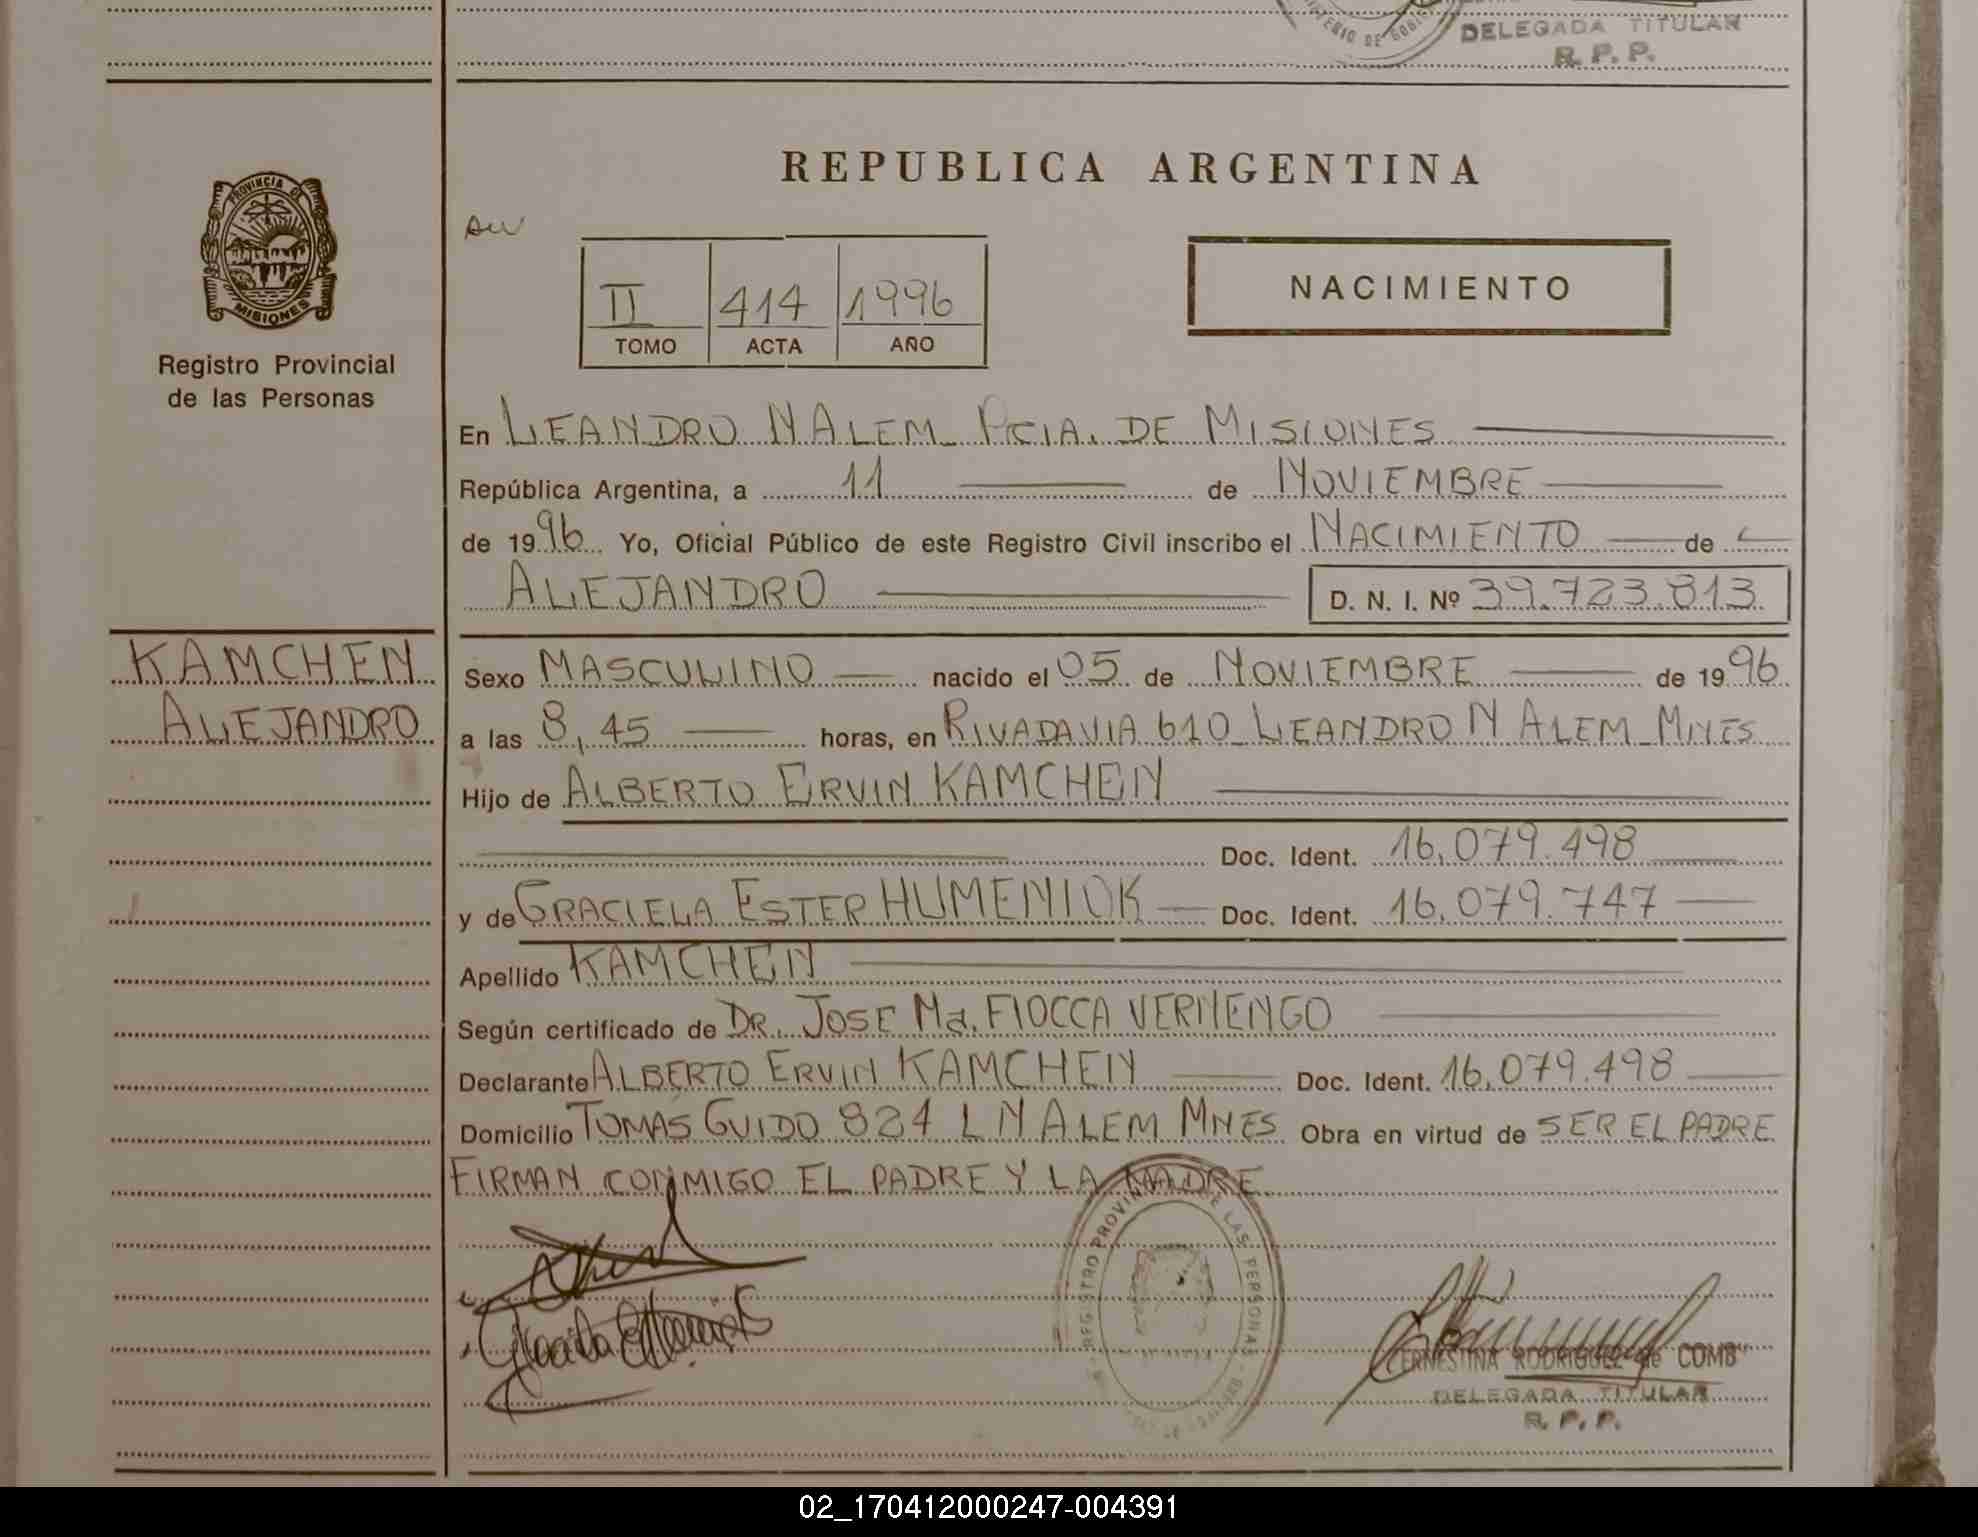 DELEGADA TITULAR
R. P. P.
PROVINCIA DE
MISIONES
Registro Provincial
de las Personas
KAMCHEN
ALEJANDRO
REPUBLICA ARGENTINA
II 414 1996
TOMO ACTA AÑO
NACIMIENTO
En LEANDRO N ALEM PCIA. DE MISIONES
República Argentina, a 11 de NOVIEMBRE
de 1996 Yo, Oficial Público de este Registro Civil inscribo el NACIMIENTO de
ALEJANDRO D. N. I. Nº 39.723.813
Sexo MASCULINO nacido el 05 de NOVIEMBRE de 1996
a las 8,45 horas, en RIVADAVIA 610 LEANDRO N ALEM MNES
Hijo de ALBERTO ERVIN KAMCHEN
Doc. Ident. 16.079.498
y de GRACIELA ESTER HUMENIUK Doc. Ident. 16.079.747
Apellido KAMCHEN
Según certificado de DR. JOSE Ma. FIOCCA VERNENGO
Declarante ALBERTO ERVIN KAMCHEN Doc. Ident. 16.079.498
Domicilio TOMAS GUIDO 824 L N ALEM MNES Obra en virtud de SER EL PADRE
FIRMAN CONMIGO EL PADRE Y LA MADRE
REGISTRO PROVINCIAL DE LAS PERSONAS
ERNESTINA RODRIGUEZ de COMB
DELEGADA TITULAR
R. P. P.
02_170412000247-004391